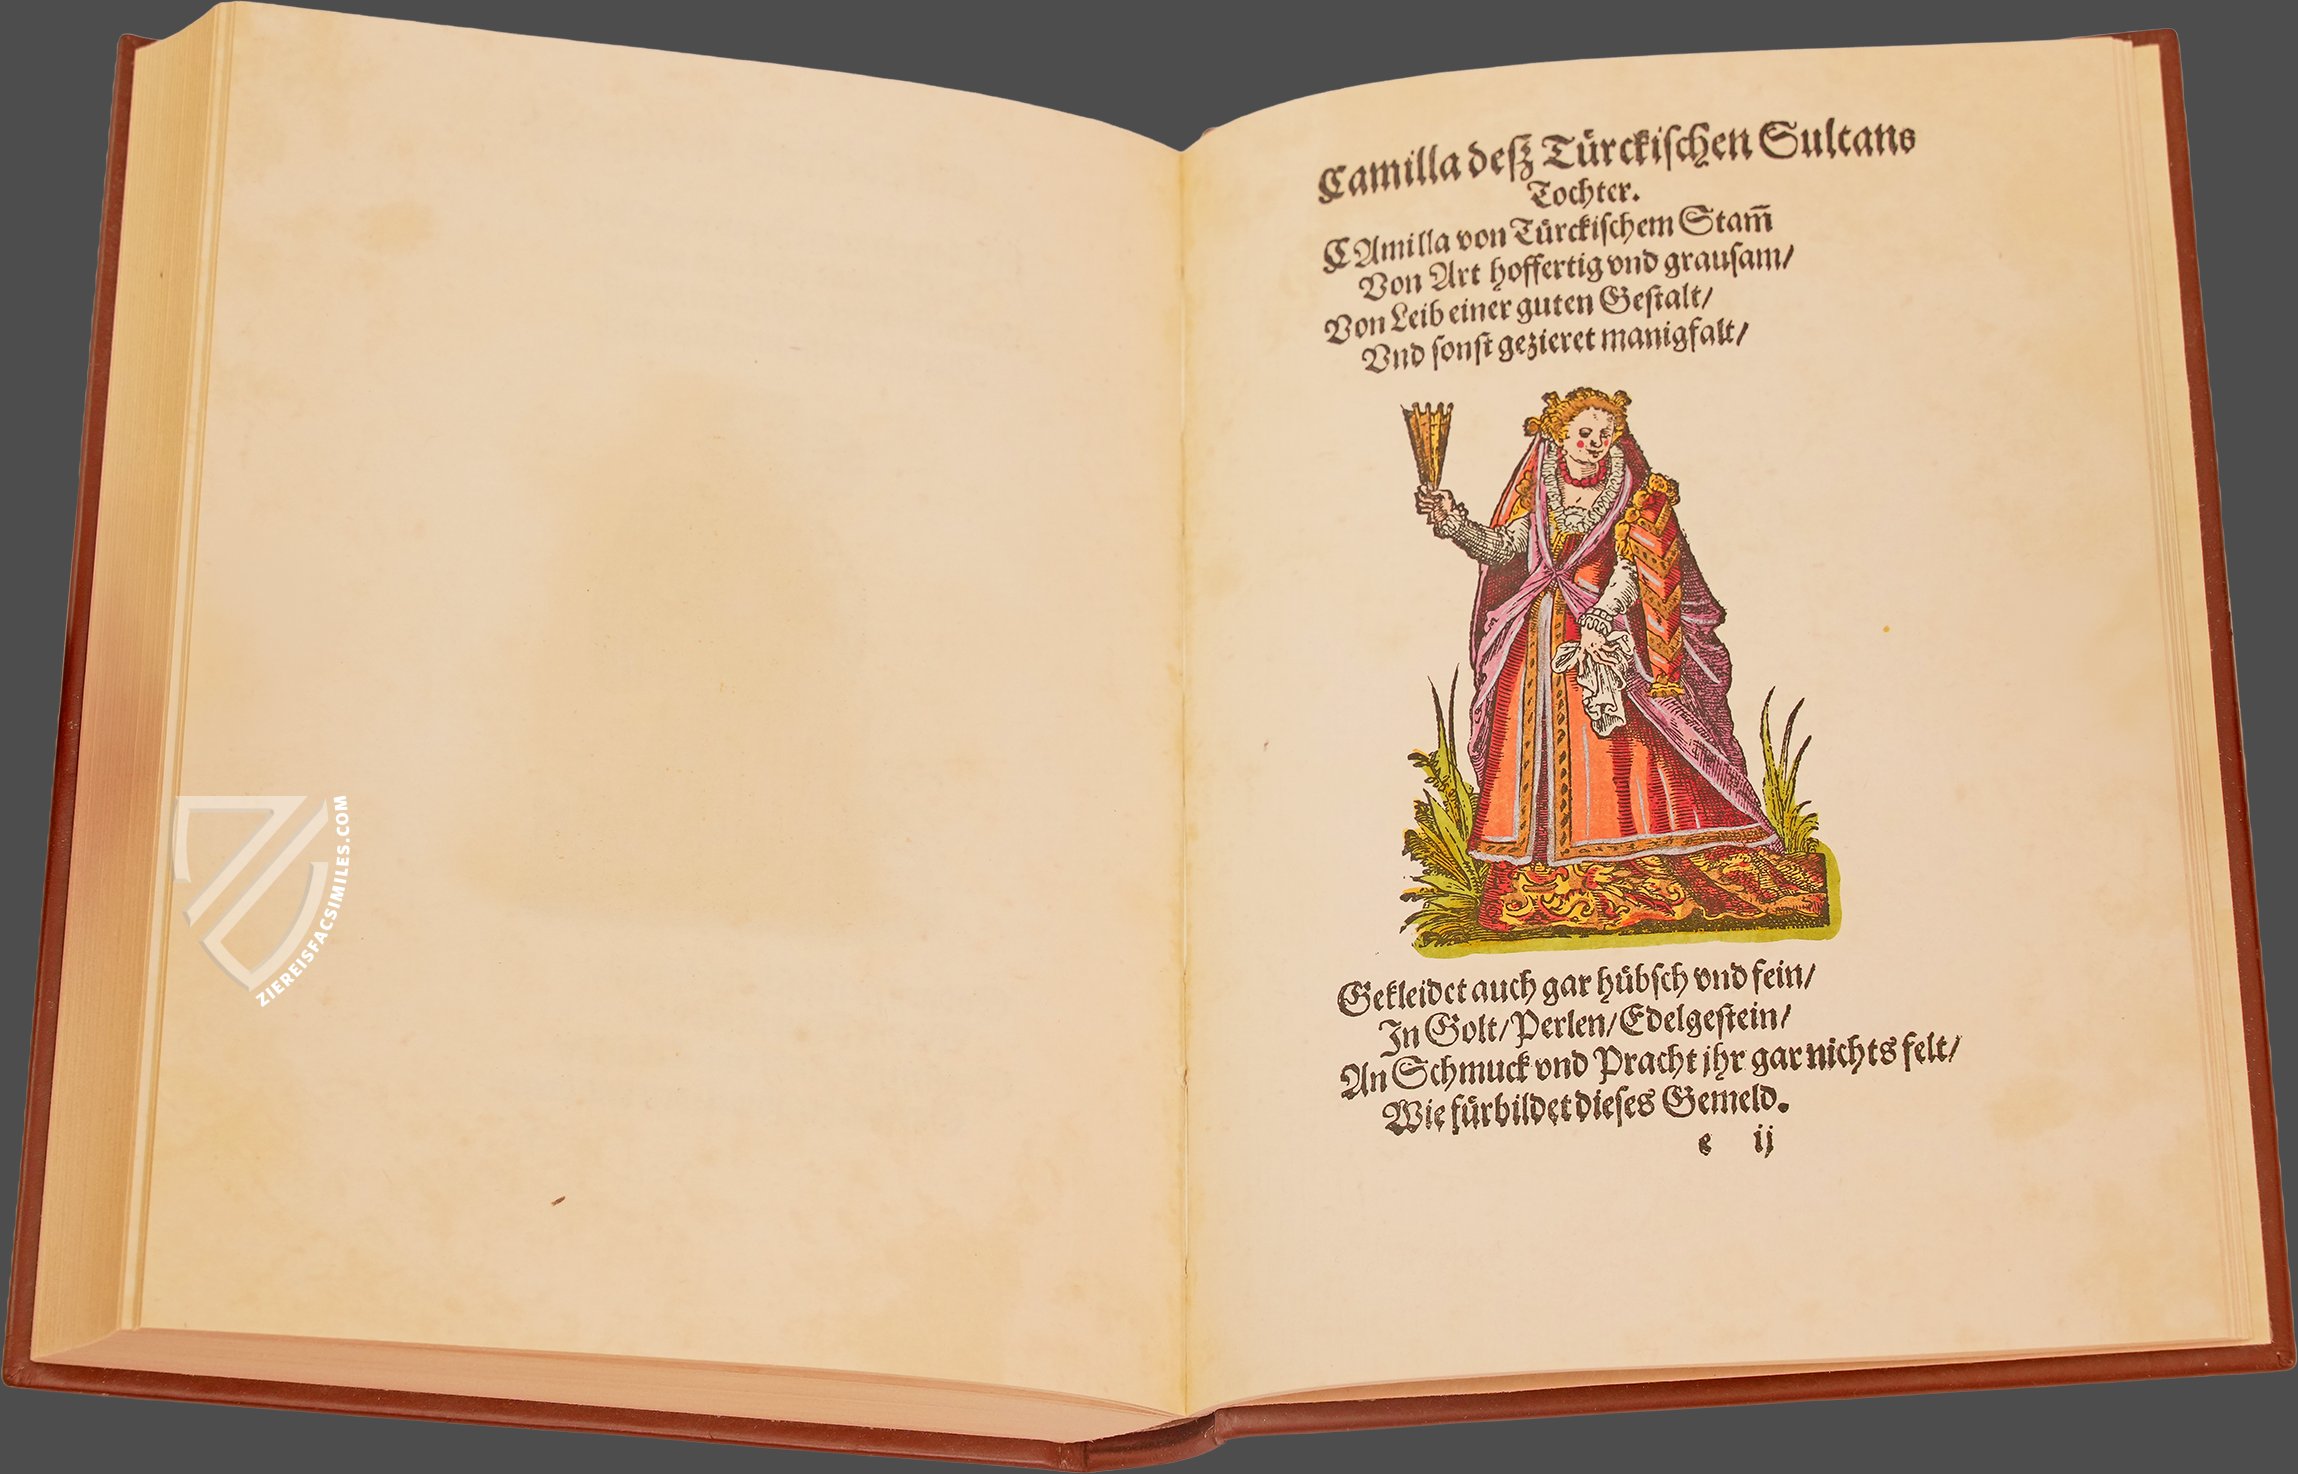 ZIEREISFACSIMILES.COM
Camilla deß Türckischen Sultans
Tochter.
CAmilla von Türckischem Stam̄
Von Art hoffertig vnd grausam/
Von Leib einer guten Gestalt/
Vnd sonst gezieret manigfalt/
Gekleidet auch gar hübsch vnd fein/
In Golt/ Perlen/ Edelgestein/
An Schmuck vnd Pracht jhr gar nichts felt/
Wie fürbildet dieses Gemeld.
e ij